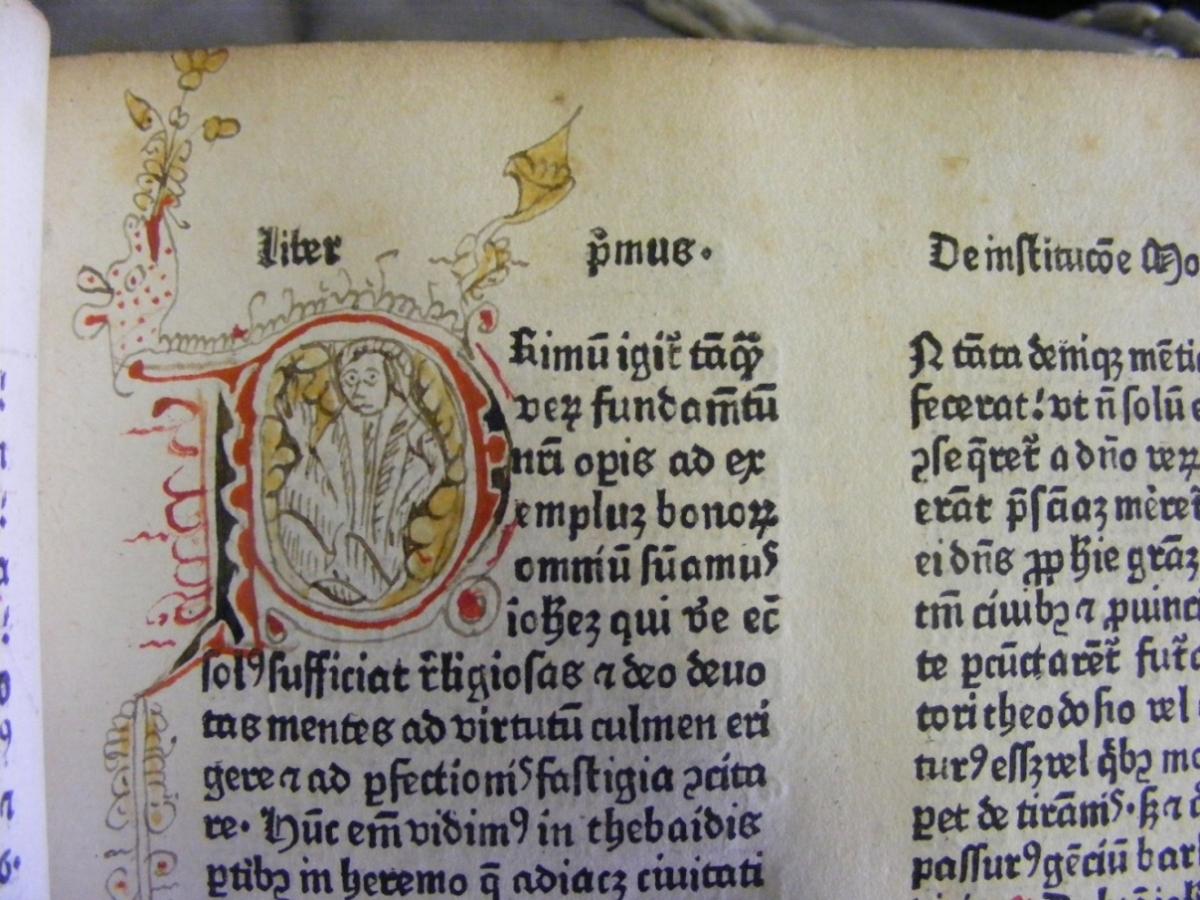 Liber p̄mus.
De institucōe Mo
PRimū igit̄ tāq̄ꝫ
verꝝ fundam̄tū
nr̄i opis ad ex
empluꝫ bonoꝝ
omniū sūamuˢ
iohēꝫ qui v̄e ec̄
solꝰ sufficiat r̄ligiosas ⁊ deo deuo
tas mentes ad virtutū culmen eri
gere ⁊ ad ꝑfectioniˢ fastigia ꝯcita
re. Hūc em̄ vidimꝰ in thebaidis
ꝑtibꝫ in heremo q̄ adiacꝫ ciuitati
N tāta deniqꝫ mēti
fecerat: vt n̄ solū
ꝯseq̄ret̄ a dn̄o
erāt p̄sc̄iaꝫ mēre
ei dn̄s ꝓph̄ie grāꝫ
tm̄ ciuibꝫ ⁊ ꝓuinc
te ꝑcūctarēt̄ fut̄a
tori theodosio vel
turꝰ essꝫ vel q̄bꝫ mo
pet de tirāniˢ. sꝫ ⁊
passurꝰ gēciū bar